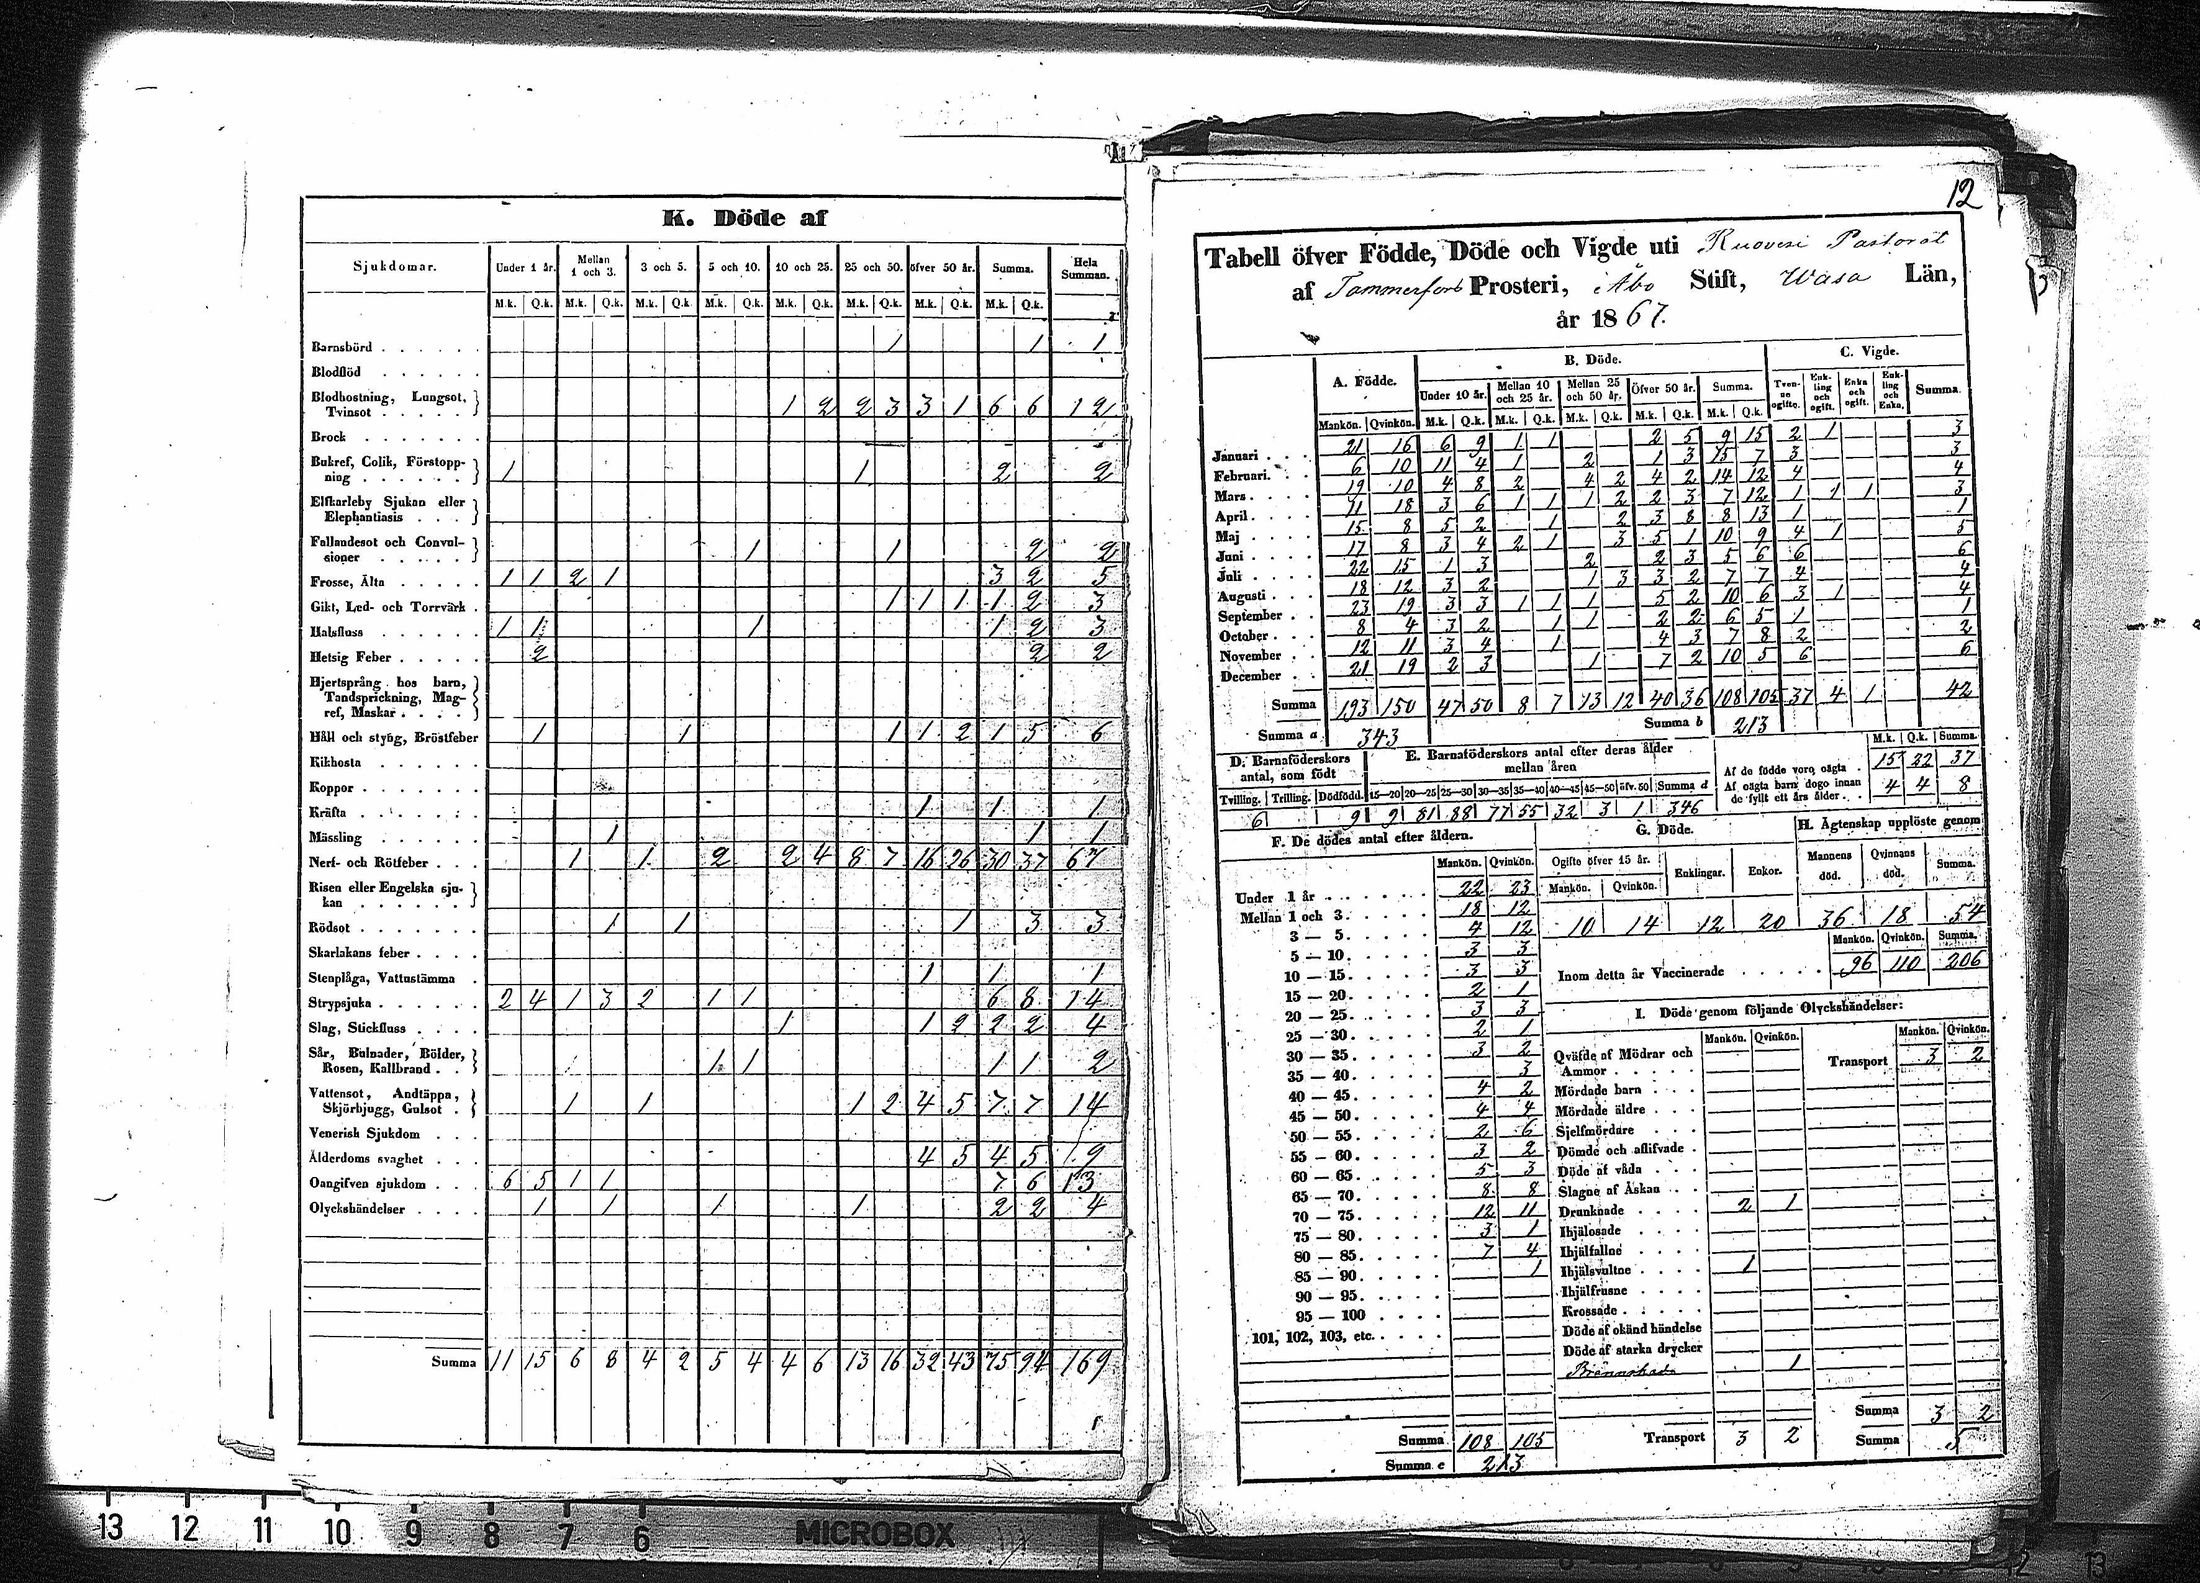 K. Döde af
Sjukdomar. Under 1 år. Mellan 1 och 3. 3 och 5. 5 och 10. 10 och 25. 25 och 50. öfver 50 år. Summa. Hela Summan.
M.k. Q.k. M.k. Q.k. M.k. Q.k. M.k. Q.k. M.k. Q.k. M.k. Q.k. M.k. Q.k. M.k. Q.k.
Barnsbörd 1 1 1
Blodflöd
Blodhostning, Lungsot,
Tvinsot 1 2 2 3 3 1 6 6 12
Brock
Bukref, Colik, Förstopp-
ning 1 1 2 2
Elfkarleby Sjukan eller
Elephantiasis
Fallandesot och Convul-
sioner 1 1 2 2
Frosse, Älta 1 1 2 1 3 2 5
Gikt, Led- och Torrvärk 1 1 1 1 2 3
Halsfluss 1 1 1 1 2 3
Hetsig Feber 2 2 2
Hjertsprång hos barn,
Tandsprickning, Mag-
ref, Maskar
Håll och styng, Bröstfeber 1 1 1 1 2 1 5 6
Kikhosta
Koppor
Kräfta 1 1 1
Mässling 1 1 1
Nerf- och Rötfeber 1 1 2 2 4 8 7 16 26 30 37 67
Risen eller Engelska sju-
kan
Rödsot 1 1 1 3 3
Skarlakans feber
Stenplåga, Vattustämma 1 1 1
Strypsjuka 2 4 1 3 2 1 1 6 8 14
Slag, Stickfluss 1 1 2 2 2 4
Sår, Bulnader, Bölder,
Rosen, Kallbrand 1 1 1 1 2
Vattensot, Andtäppa,
Skörbjugg, Gulsot 1 1 1 2 4 5 7 7 14
Venerisk Sjukdom
Ålderdoms svaghet 4 5 4 5 9
Oangifven sjukdom 6 5 1 1 7 6 13
Olyckshändelser 1 1 1 1 2 2 4
Summa 11 15 6 8 4 2 5 4 4 6 13 16 32 43 75 94 169
12
Tabell öfver Födde, Döde och Vigde uti Ruovesi Pastorat
af Tammerfors Prosteri, i Åbo Stift, Wasa Län,
år 1867.
A. Födde. B. Döde. C. Vigde.
Under 10 år. Mellan 10 och 25 år. Mellan 25 och 50 år. Öfver 50 år. Summa. Tven-ne ogifte. Enk-ling och ogift. Enka och ogift. Enk-ling och Enka. Summa.
Mankön. Qvinkön. M.k. Q.k. M.k. Q.k. M.k. Q.k. M.k. Q.k. M.k. Q.k.
Januari 21 16 6 9 1 1 2 5 9 15 2 1 3
Februari 6 10 11 4 1 2 1 3 15 7 3 3
Mars 19 10 4 8 2 4 2 4 2 14 12 4 4
April 11 18 3 6 1 1 1 2 2 3 7 12 1 1 1 3
Maj 15 8 5 2 1 2 3 8 8 13 1 1
Juni 17 8 3 4 2 1 3 5 1 10 9 4 1 5
Juli 22 15 1 3 2 2 3 5 6 6 6
Augusti 18 12 3 2 1 3 3 2 7 7 4 4
September 23 19 3 3 1 1 1 5 2 10 6 3 1 4
October 8 4 3 2 1 1 2 2 6 5 1 1
November 12 11 3 4 1 4 3 7 8 2 2
December 21 19 2 3 1 7 2 10 5 6 6
Summa 193 150 47 50 8 7 13 12 40 36 108 105 37 4 1 42
Summa a 343 Summa b 213
D. Barnaföderskors antal, som födt
Tvilling. Trilling. Dödfödd.
6 9
E. Barnaföderskors antal efter deras ålder mellan åren
15—20 20—25 25—30 30—35 35—40 40—45 45—50 öfv. 50 Summa d
9 81 88 77 55 32 3 1 346
M.k. Q.k. Summa
Af de födde voro oägta 15 22 37
Af oägta barn dogo innan
de fyllt ett års ålder 4 4 8
F. De dödes antal efter åldern.
Mankön. Qvinkön.
Under 1 år 22 23
Mellan 1 och 3 18 12
3 — 5 4 12
5 — 10 3 3
10 — 15 3 3
15 — 20 2 1
20 — 25 3 3
25 — 30 2 1
30 — 35 3 2
35 — 40 3
40 — 45 4 2
45 — 50 4 4
50 — 55 2 6
55 — 60 3 2
60 — 65 5 3
65 — 70 8 8
70 — 75 12 11
75 — 80 3 1
80 — 85 7 4
85 — 90 1
90 — 95
95 — 100
101, 102, 103, etc.
Summa 108 105
Summa c 213
G. Döde.
Ogifte öfver 15 år. Enklingar. Enkor.
Mankön. Qvinkön.
10 14 12 20
H. Ägtenskap upplöste genom
Mannens död. Qvinnans död. Summa.
36 18 54
Mankön. Qvinkön. Summa.
Inom detta år Vaccinerade 96 110 206
I. Döde genom följande Olyckshändelser:
Mankön. Qvinkön. Mankön. Qvinkön.
Qväfde af Mödrar och
Ammor
Transport 3 2
Mördade barn
Mördade äldre
Sjelfmördare
Dömde och aflifvade
Döde af våda
Slagne af Åskan
Drunknade 2 1
Ihjälosade
Ihjälfallne
Ihjälsvultne 1
Ihjälfrusne
Krossade
Döde af okänd händelse
Döde af starka drycker
Brännskada 1
Summa 3 2
Transport 3 2 Summa 5
13 12 11 10 9 8 7 6
MICROBOX
12 13